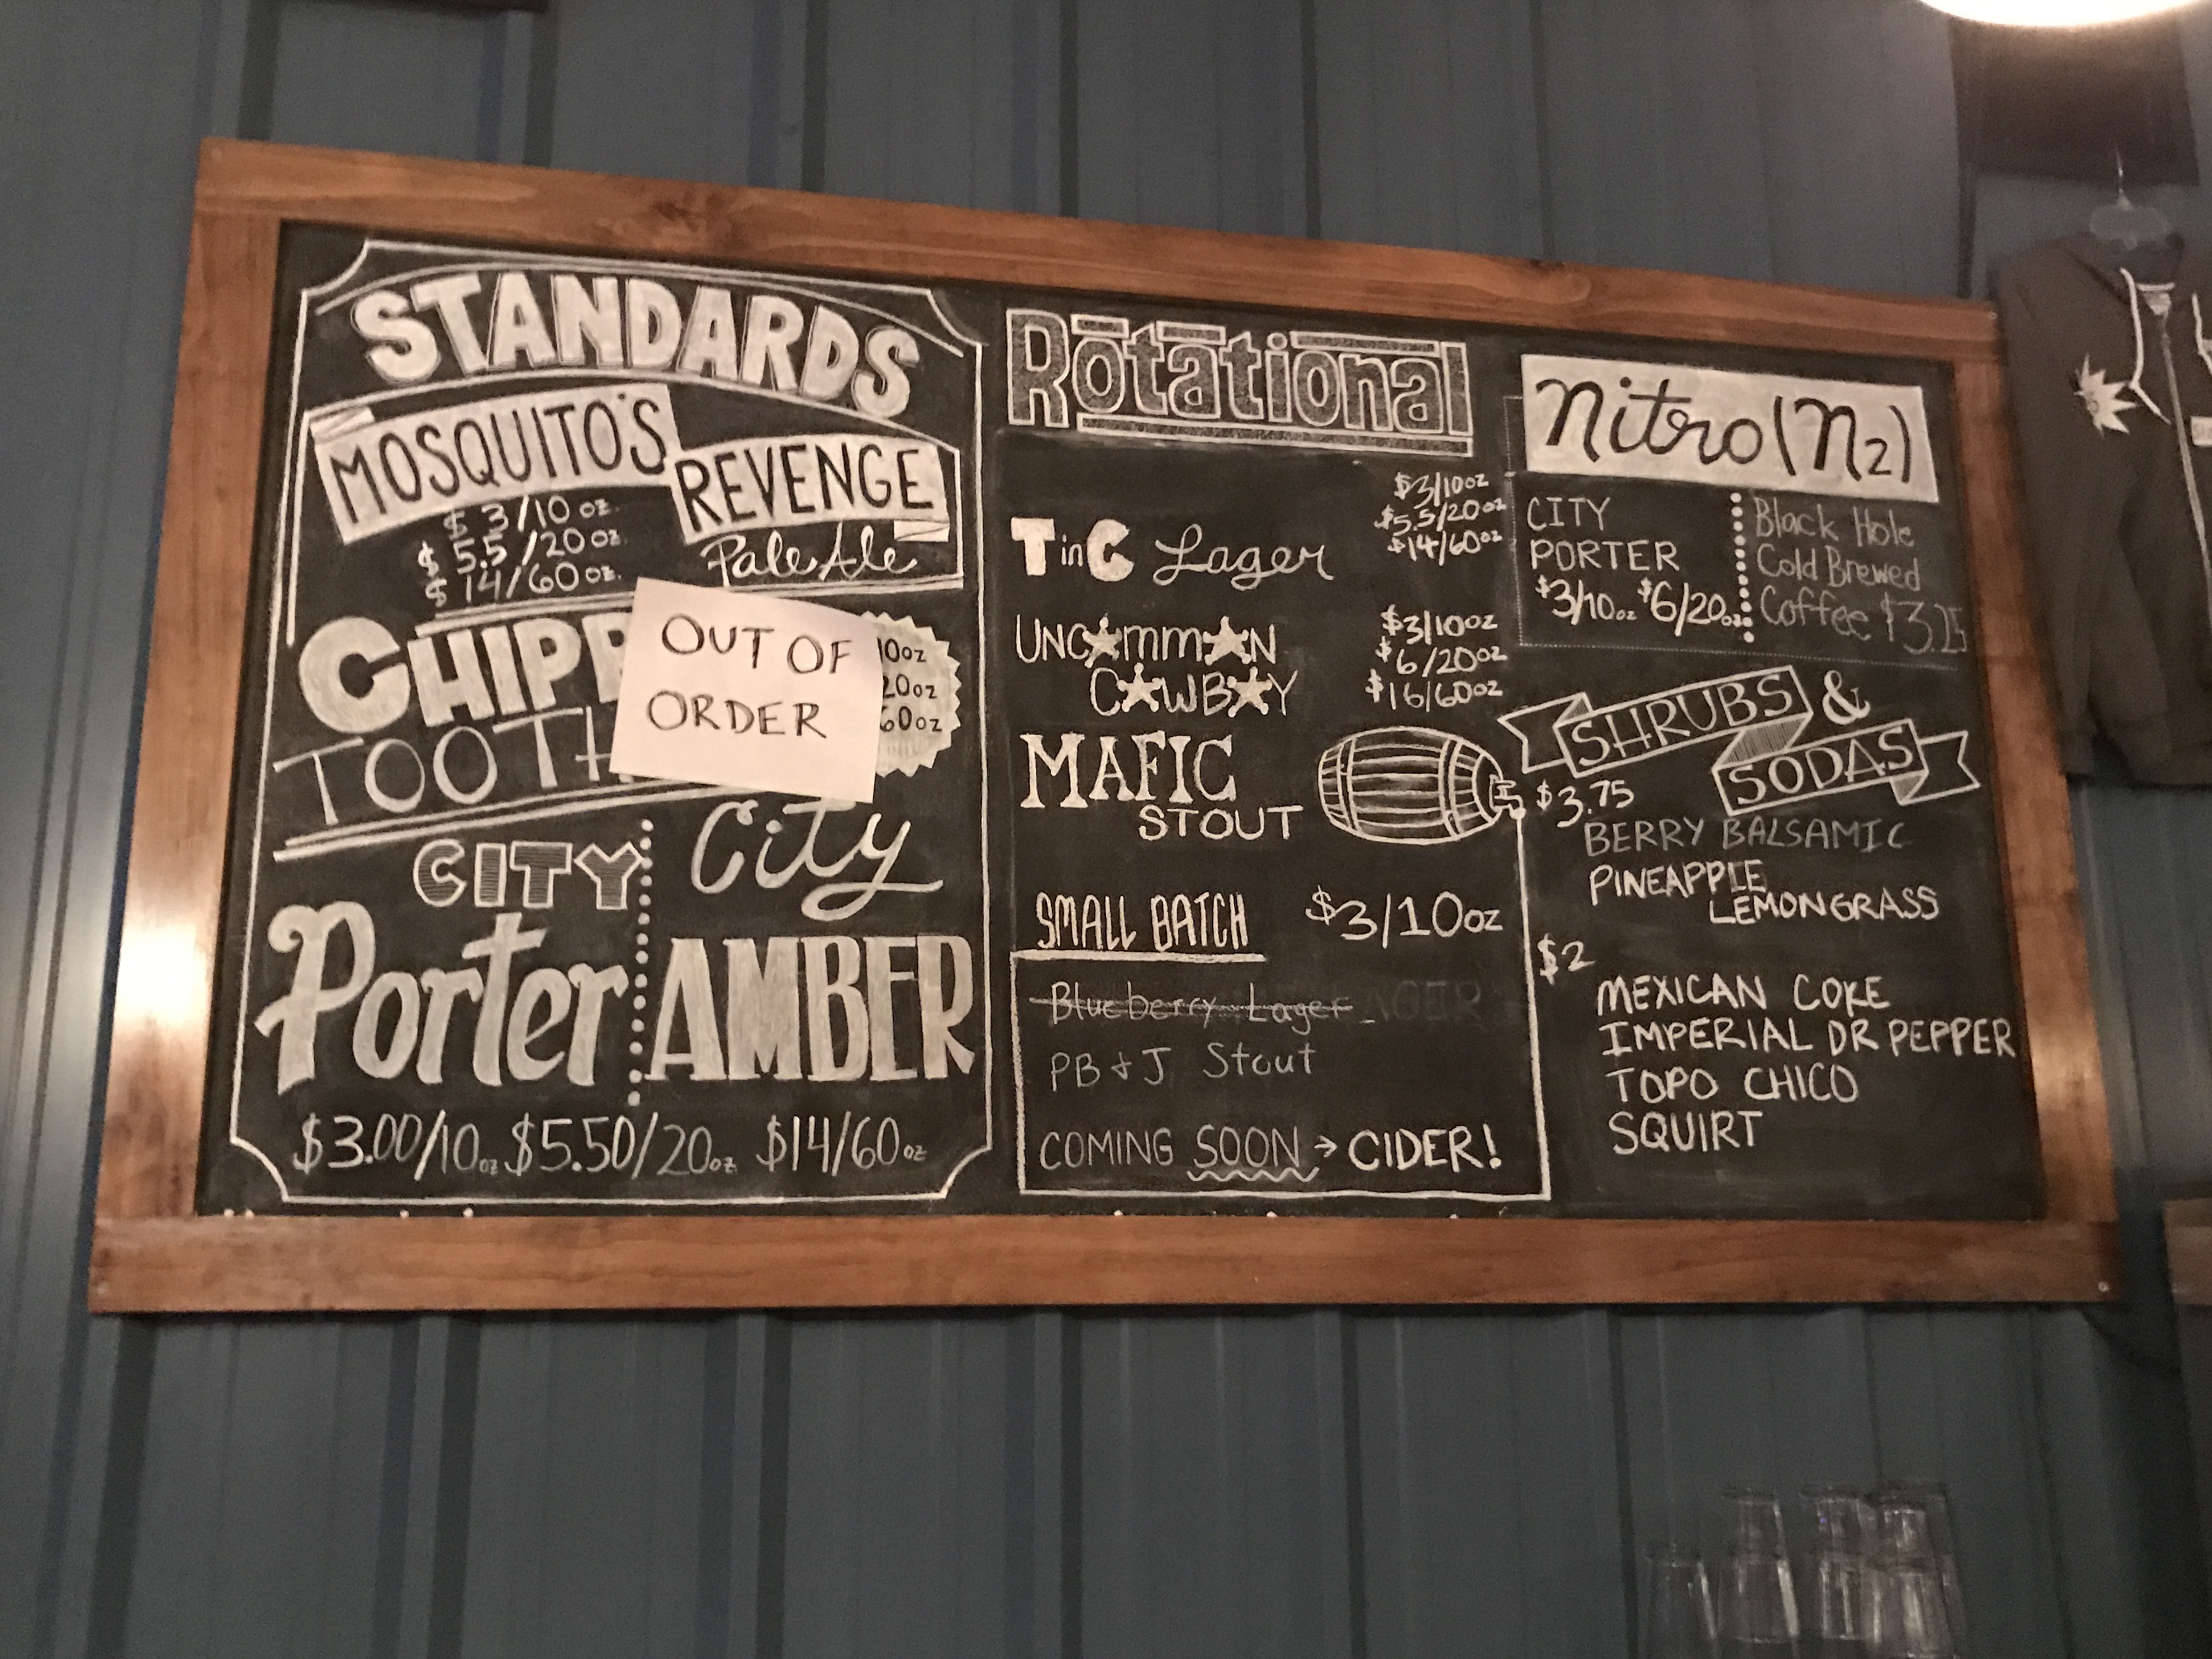 STANDARDS
MOSQUITO'S
REVENGE
$ 3/10 oz.
$ 5.5/20 oz.
$ 14/60 oz.
Pale Ale
OUT OF
ORDER
10oz
20oz
60oz
TOOTH
CITY
Porter
City
AMBER
$3.00/10oz $5.50/20oz $14/60oz
Rotational
T in C Lager
$3/10oz
$5.5/20oz
$14/60oz
UNCOMMON
COWBOY
$3/10oz
$6/20oz
$16/60oz
MAFIC
STOUT
SMALL BATCH $3/10oz
Blueberry Lager
PB & J Stout
COMING SOON → CIDER!
Nitro (N2)
CITY
PORTER
$3/10oz $6/20oz
Black Hole
Cold Brewed
Coffee $3.25
SHRUBS &
SODAS
$3.75
BERRY BALSAMIC
PINEAPPLE
LEMONGRASS
$2
MEXICAN COKE
IMPERIAL DR PEPPER
TOPO CHICO
SQUIRT